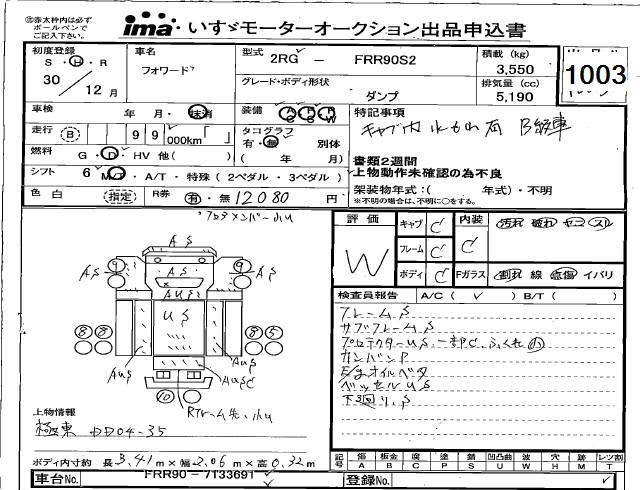 ㊟赤太枠内は必ず
ボールペンで
ご記入下さい。
ima いすゞモーターオークション出品申込書
初度登録 S・H・R 30 / 12 月
車名 フォワード
型式 2RG － FRR90S2
積載 (kg) 3,550
1003
グレード・ボディ形状 ダンプ
排気量 (cc) 5,190
車検 年・月・抹消
装備 A/C P/S P/W
特記事項
走行 B 99,000km「 」
タコグラフ 有・無 別体 ( 年 月)
B経車
燃料 G・D・HV 他( )
書類2週間
シフト 6 M/T・A/T・特殊(2ペダル・3ペダル)
上物動作未確認の為不良
色 白 (指定) R券 有・無 12080 円
架装物年式：( 年式)・不明
※不明の場合は、不明に○をする。
評価 W
キャブ C
フレーム C
ボディ C
内装 C
Fガラス
汚れ 破れ ヤニ スレ
割れ 線 点傷 イバリ
検査員報告 A/C ( ✓ ) B/T ( )
フレームS
サブフレームS
プロテクターUS、一部C、ふくれ小
カンバンP
E/gオイルベタ
ベッセルUS
下廻り、S
AS
AS
9
9
AS
AS
AUS
US
8 8
8 5
AUS
AUSC
10
上物情報
極東 DD04-35
ボディ内寸約 長3.41m×幅2.06m×高0.32m
記号 傷 板金 腐 塗 錆 凹凸曲 波 穴 跡 レツ割
A B C P S U W H M T
車台No. FRR90 － 7133691
登録No.